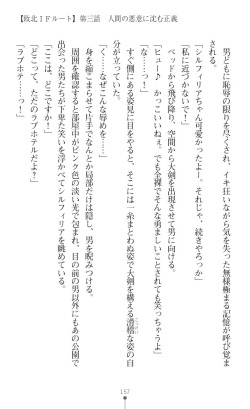 【敗北ＩＦルート】第三話　人間の悪意に沈む正義
男どもに恥辱の限りを尽くされ、イキ狂いながら気を失った無様極まる記憶が呼び覚ま
される。
「シルフィリアちゃん可愛かったよー。それじゃ、続きやろっか」
「私に近づかないで！」
ベッドから飛び降り、空間から大剣を出現させて男に向ける。
「ヒュー♪　かっこいいねぇ。でも全裸でそんな勇ましいことされても笑っちゃうよ」
「くっ……なぜこんな辱めを……」
すぐ側にある姿見に目をやると、そこには一糸まとわぬ姿で大剣を構える滑稽な姿の自
分が立っていた。
身を縮こませて片手でなんとか局部だけは隠し、男を睨みつける。
周囲を確認すると部屋中がピンク色の淡い光で包まれ、目の前の男以外にもあの公園で
出会った男たちが下卑た笑いを浮かべてシルフィリアを眺めている。
「ここは、どこですか！」
「どこって、ただのラブホテルだよ？」
「ラブホテ……っ」
157